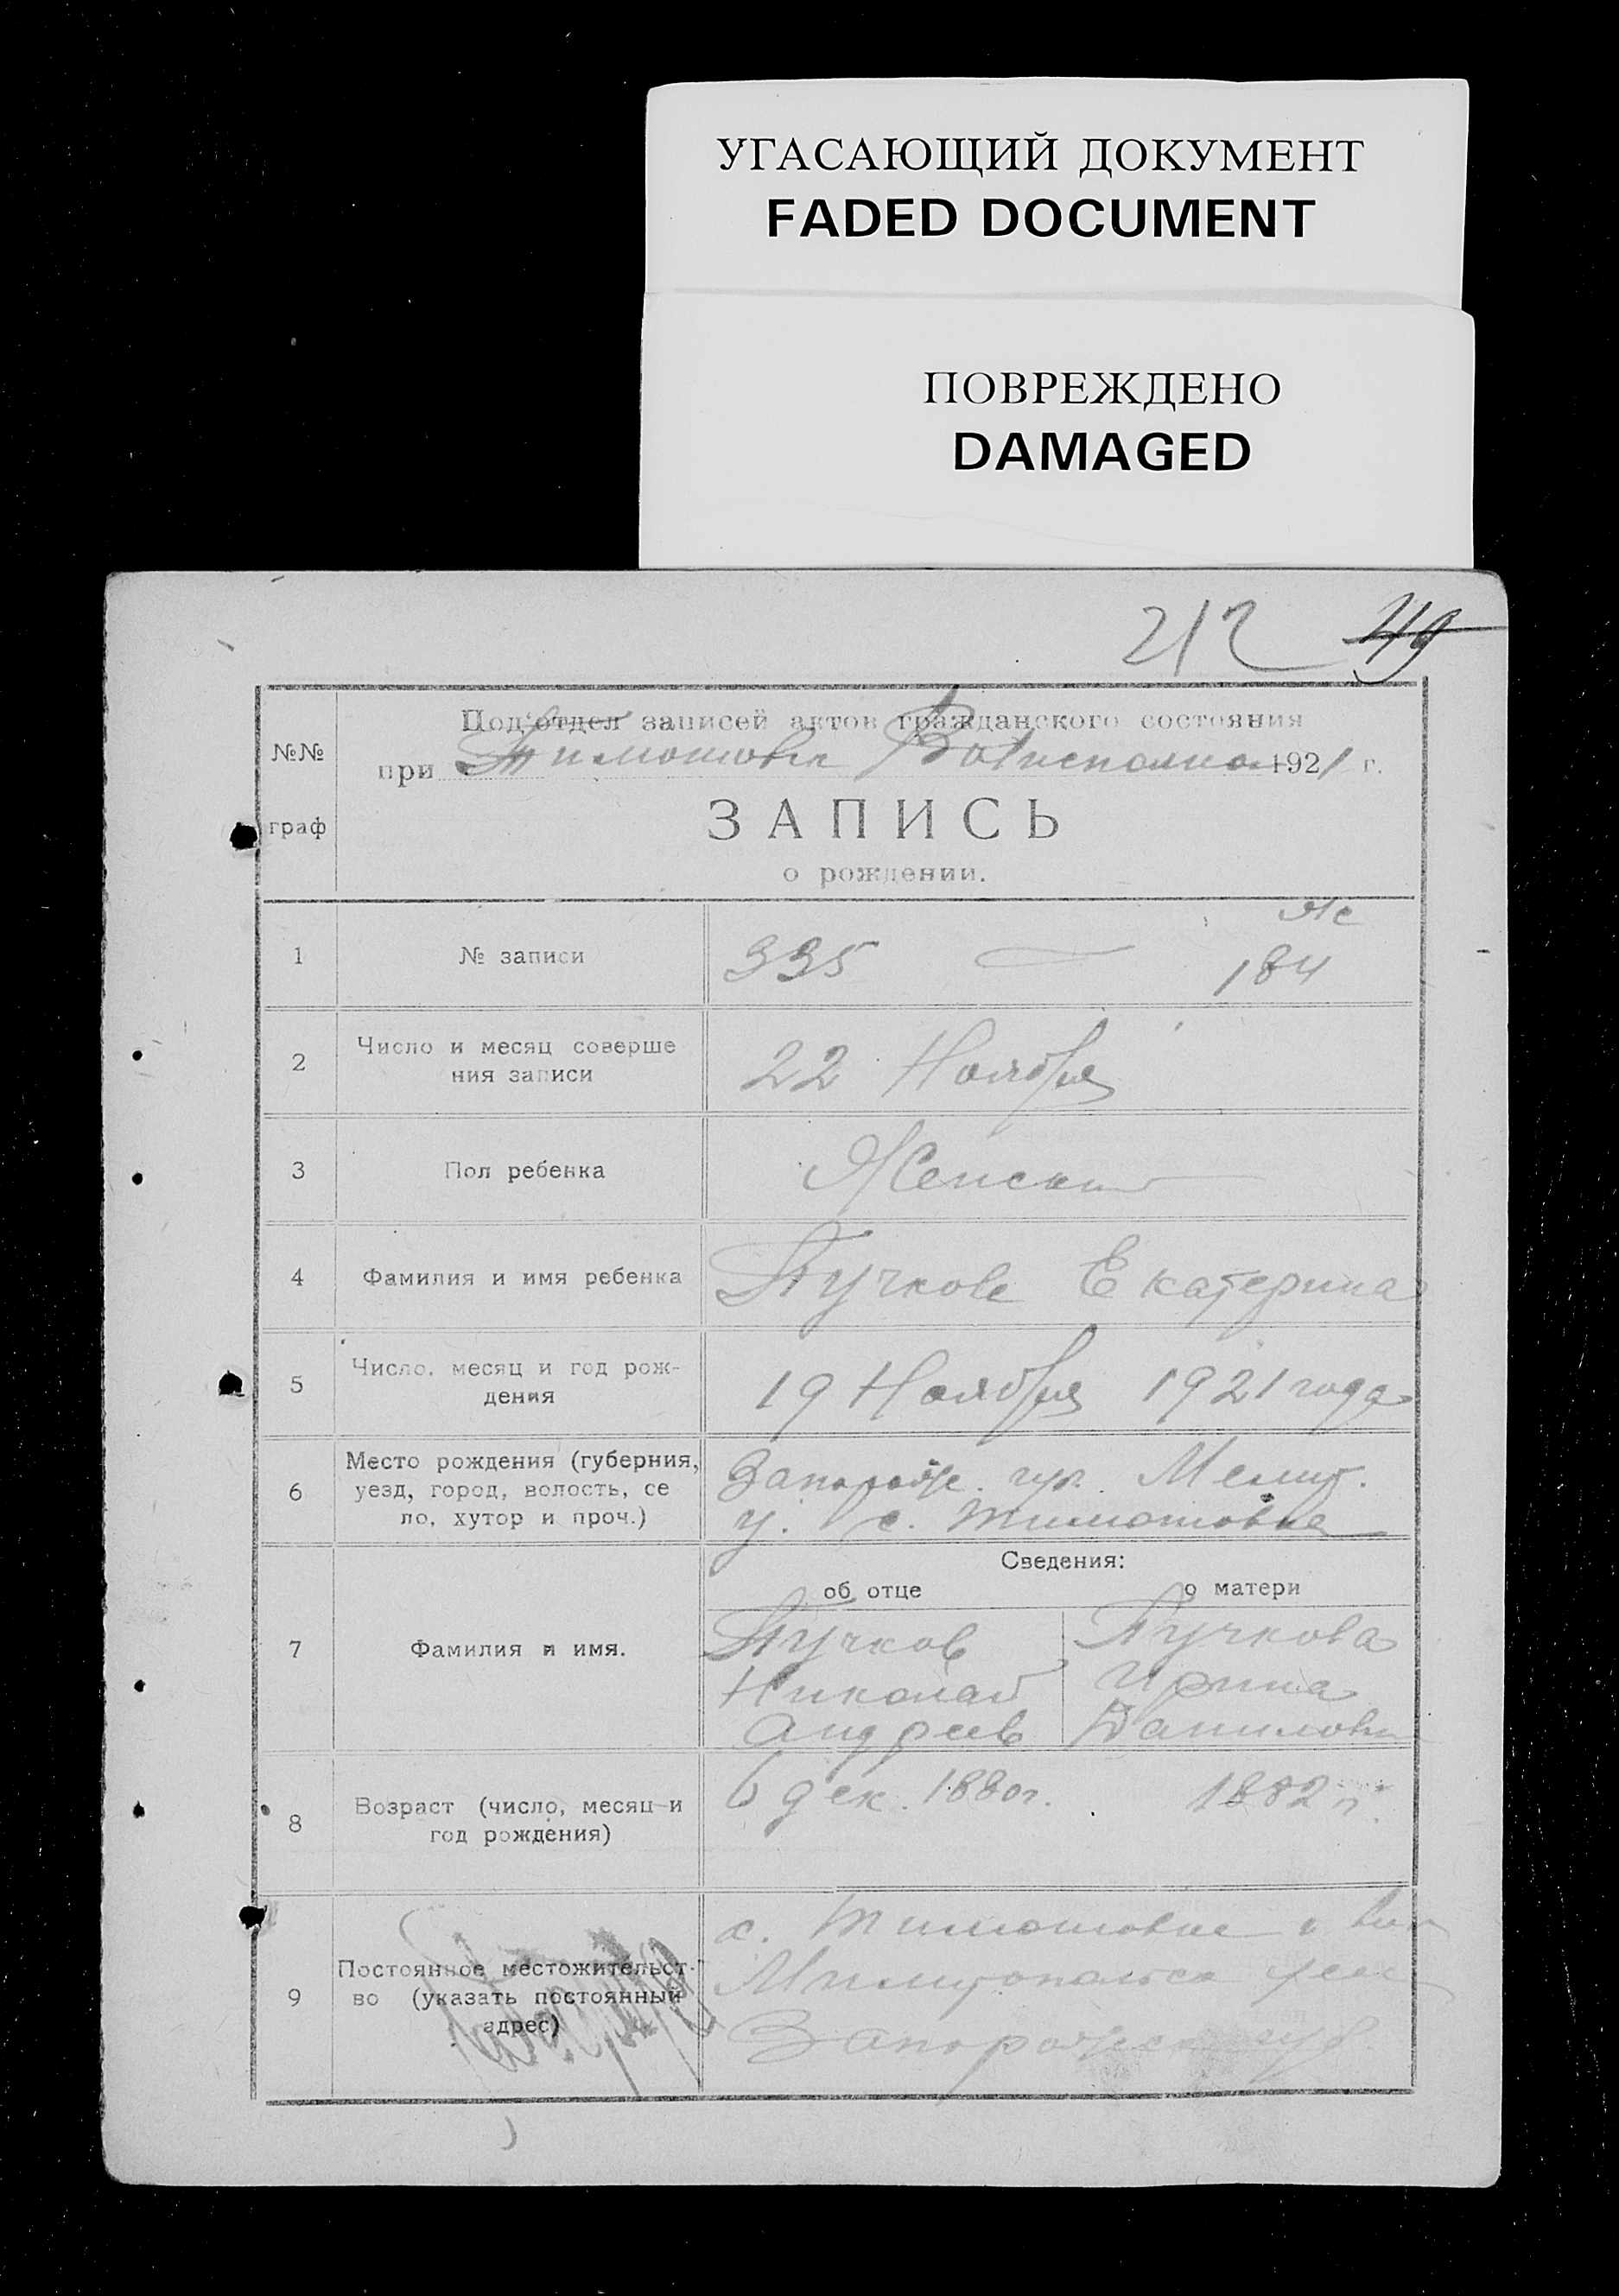 УГАСАЮЩИЙ ДОКУМЕНТ
FADED DOCUMENT
ПОВРЕЖДЕНО
DAMAGED
212 49
№№
граф
Под'отдел записей актов гражданского состояния
при Тимошовск Волисполко 1921 г.
ЗАПИСЬ
о рождении.
1 № записи 335 184
2 Число и месяц соверше
ния записи
22 Ноября
3 Пол ребенка Женский
4 Фамилия и имя ребенка Пучкова Екатерина
5 Число, месяц и год рож-
дения
19 Ноября 1921 года
6 Место рождения (губерния,
уезд, город, волость, се
ло, хутор и проч.)
Запорож. губ. Мелит.
у. с. Тимошовка
Сведения:
об отце о матери
7 Фамилия и имя.
Пучков
Николай
Андреев
Пучкова
Ирина
Данилов
8 Возраст (число, месяц и
год рождения)
6 дек. 1880г. 1882 г.
9 Постоянное местожительст-
во (указать постоянный
адрес)
с. Тимошовка
Мелитопольск
Запорожск губ.